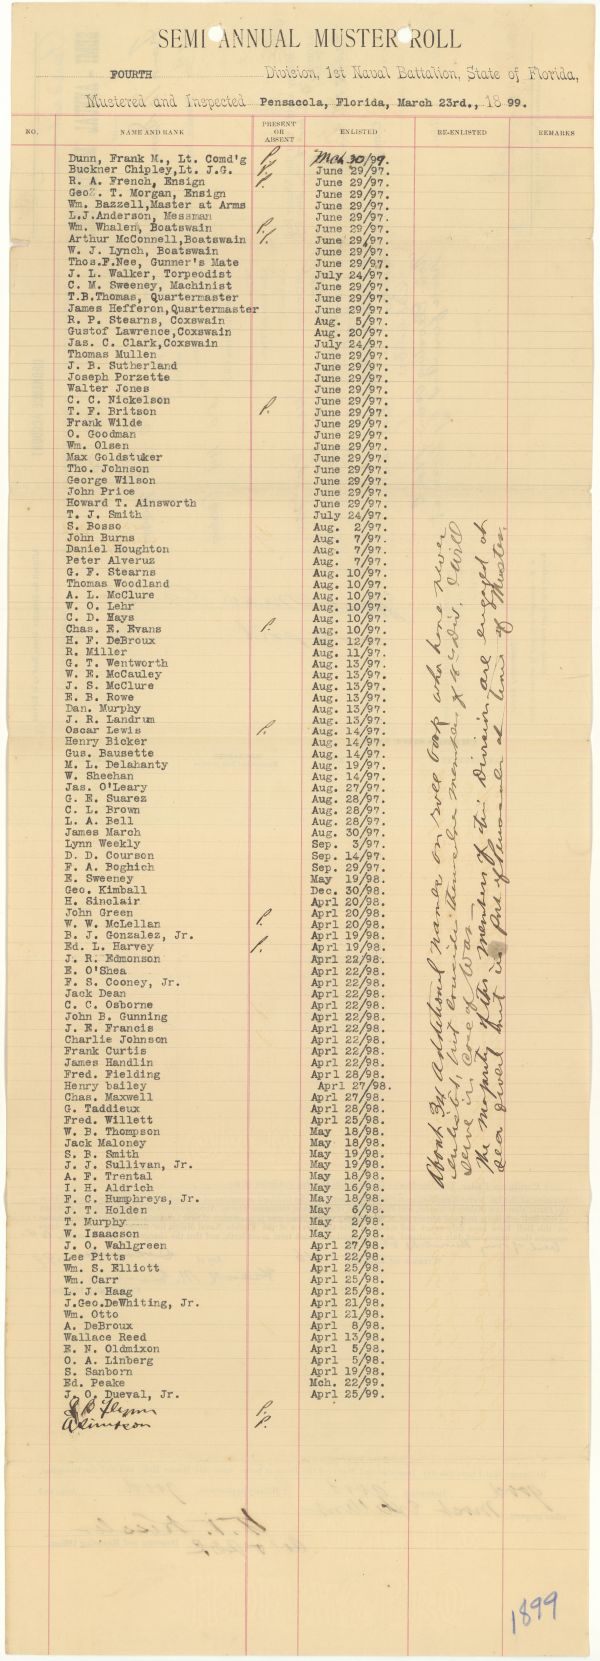 SEMI ANNUAL MUSTER ROLL
FOURTH Division, 1st Naval Battalion, State of Florida,
Mustered and Inspected Pensacola, Florida, March 23rd., 1899.
NO. NAME AND RANK PRESENT OR ABSENT ENLISTED RE-ENLISTED REMARKS
Dunn, Frank M., Lt. Comd'g P. Mch 30/97.
Buckner Chipley,Lt. J.G. P. June 29/97.
R. A. French, Ensign P. June 29/97.
Geo. T. Morgan, Ensign June 29/97.
Wm. Bazzell,Master at Arms June 29/97.
L.J.Anderson, Messman June 29/97.
Wm. Whalen, Boatswain P. June 29/97.
Arthur McConnell,Boatswain P. June 29/97.
W. J. Lynch, Boatswain June 29/97.
Thos.F.Nee, Gunner's Mate June 29/97.
J. L. Walker, Torpedist July 24/97.
C. M. Sweeney, Machinist June 29/97.
T.B.Thomas, Quartermaster June 29/97.
James Hefferon,Quartermaster June 29/97.
R. P. Stearns, Coxswain Aug. 5/97.
Gustof Lawrence,Coxswain Aug. 20/97.
Jas. C. Clark,Coxswain July 24/97.
Thomas Mullen June 29/97.
J. B. Sutherland June 29/97.
Joseph Porzette June 29/97.
Walter Jones June 29/97.
C. C. Nickelson June 29/97.
T. F. Britson P. June 29/97.
Frank Wilde June 29/97.
O. Goodman June 29/97.
Wm. Olsen June 29/97.
Max Goldstuker June 29/97.
Tho. Johnson June 29/97.
George Wilson June 29/97.
John Price June 29/97.
Howard T. Ainsworth June 29/97.
T. J. Smith July 24/97.
S. Bosso Aug. 2/97.
John Burns Aug. 7/97.
Daniel Houghton Aug. 7/97.
Peter Alveruz Aug. 7/97.
G. F. Stearns Aug. 10/97.
Thomas Woodland Aug. 10/97.
A. L. McClure Aug. 10/97.
W. O. Lehr Aug. 10/97.
C. D. Mays Aug. 10/97.
Chas. E. Evans P. Aug. 10/97.
H. F. DeBroux Aug. 12/97.
R. Miller Aug. 11/97.
G. T. Wentworth Aug. 13/97.
W. E. McCauley Aug. 13/97.
J. S. McClure Aug. 13/97.
E. B. Rowe Aug. 13/97.
Dan. Murphy Aug. 13/97.
J. R. Landrum Aug. 13/97.
Oscar Lewis P. Aug. 14/97.
Henry Bicker Aug. 14/97.
Gus. Bausette Aug. 14/97.
M. L. Delahanty Aug. 19/97.
W. Sheehan Aug. 14/97.
Jas. O'Leary Aug. 27/97.
G. E. Suarez Aug. 28/97.
C. L. Brown Aug. 28/97.
L. A. Bell Aug. 28/97.
James March Aug. 30/97.
Lynn Weekly Sep. 3/97.
D. D. Courson Sep. 14/97.
F. A. Boghich Sep. 29/97.
E. Sweeney May 19/98.
Geo. Kimball Dec. 30/98.
H. Sinclair Aprl 20/98.
John Green P. Aprl 20/98.
W. W. McLellan Aprl 20/98.
B. J. Gonzalez, Jr. Aprl 19/98.
Ed. L. Harvey P. Aprl 19/98.
J. R. Edmonson Aprl 22/98.
E. O'Shea Aprl 22/98.
F. S. Cooney, Jr. Aprl 22/98.
Jack Dean Aprl 22/98.
C. C. Osborne Aprl 22/98.
John B. Gunning Aprl 22/98.
J. E. Francis Aprl 22/98.
Charlie Johnson Aprl 22/98.
Frank Curtis Aprl 22/98.
James Handlin Aprl 22/98.
Fred. Fielding Aprl 28/98.
Henry bailey Aprl 27/98.
Chas. Maxwell Aprl 27/98.
G. Taddieux Aprl 28/98.
Fred. Willett Aprl 25/98.
W. B. Thompson May 18/98.
Jack Maloney May 18/98.
S. B. Smith May 19/98.
J. J. Sullivan, Jr. May 19/98.
A. F. Trental May 18/98.
I. H. Aldrich May 16/98.
F. C. Humphreys, Jr. May 18/98.
J. T. Holden May 6/98.
T. Murphy May 2/98.
W. Isaacson May 2/98.
J. O. Wahlgreen Aprl 27/98.
Lee Pitts Aprl 22/98.
Wm. S. Elliott Aprl 25/98.
Wm. Carr Aprl 25/98.
L. J. Haag Aprl 25/98.
J.Geo.DeWhiting, Jr. Aprl 21/98.
Wm. Otto Aprl 21/98.
A. DeBroux Aprl 8/98.
Wallace Reed Aprl 13/98.
E. N. Oldmixon Aprl 5/98.
O. A. Linberg Aprl 5/98.
S. Sanborn Aprl 19/98.
Ed. Peake Mch. 22/99.
J. O. Dueval, Jr. Aprl 25/99.
J B Flynn P.
A Simpson P.
About 34 additional names on roll book who have never
enlisted, but consider themselves members of the div. & will
serve in case of War—
The majority of the members of this Division are engaged at
sea duty & not in Port of Pensacola at time of Muster.
1899